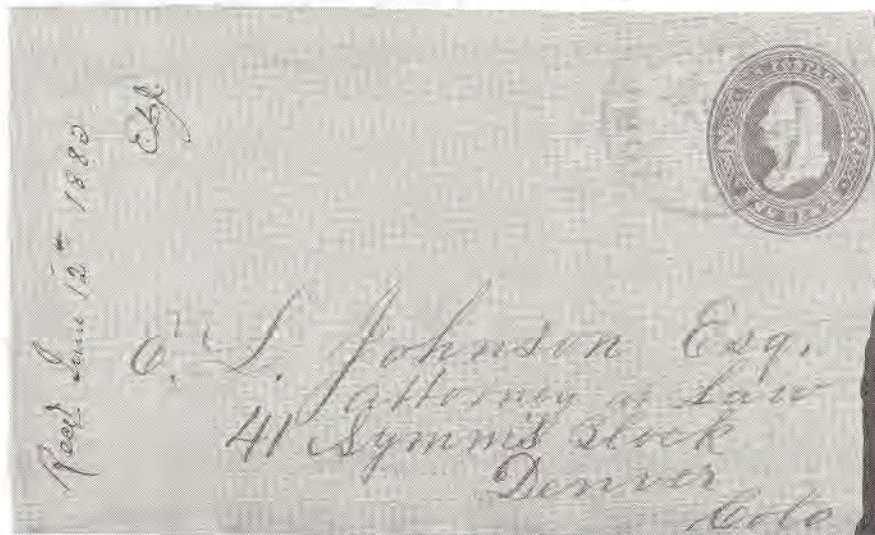 Recd June 12th 1880
E. L. Johnson Esq.
Attorney at Law
41 Symm's Block
Denver
Colo